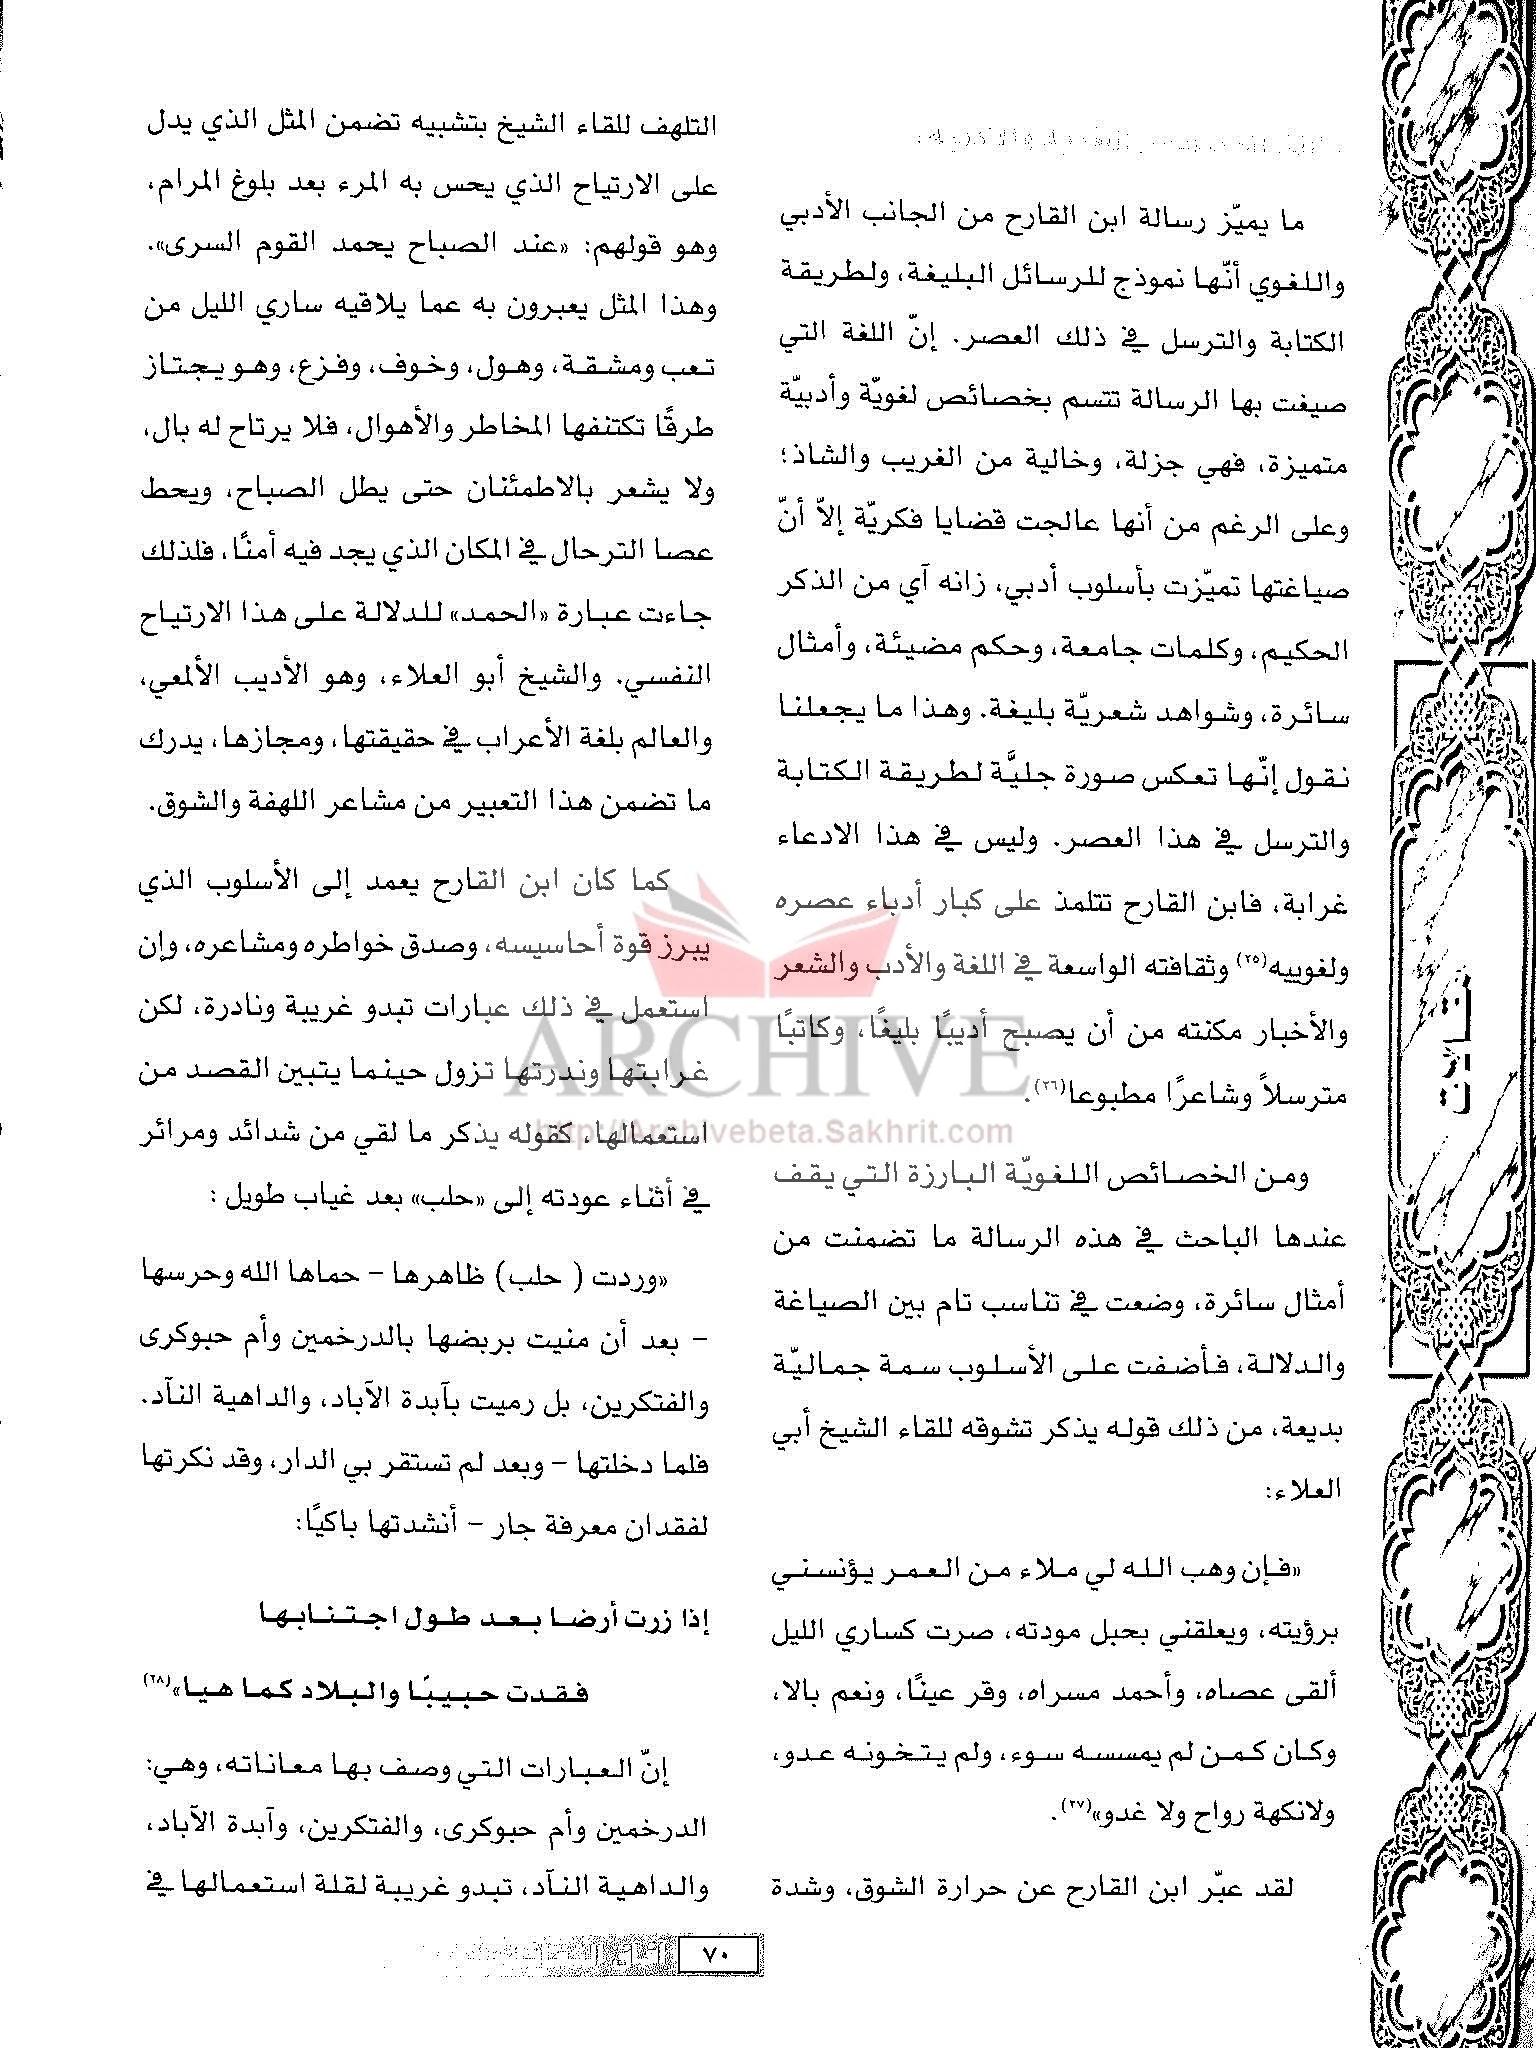 ما يميّز رسالة ابن القارح من الجانب الأدبي
واللغوي أنّها نموذج للرسائل البليغة، ولطريقة
الكتابة والترسل في ذلك العصر. إنّ اللغة التي
صيغت بها الرسالة تتسم بخصائص لغويّة وأدبيّة
متميزة، فهي جزلة، وخالية من الغريب والشاذ؛
وعلى الرغم من أنها عالجت قضايا فكريّة إلاّ أنّ
صياغتها تميّزت بأسلوب أدبي، زانه آي من الذكر
الحكيم، وكلمات جامعة، وحكم مضيئة، وأمثال
سائرة، وشواهد شعريّة بليغة. وهذا ما يجعلنا
نقول إنّها تعكس صورة جليَّة لطريقة الكتابة
والترسل في هذا العصر. وليس في هذا الادعاء
غرابة، فابن القارح تتلمذ على كبار أدباء عصره
ولغوييه(٢٥) وثقافته الواسعة في اللغة والأدب والشعر
والأخبار مكنته من أن يصبح أديبًا بليغًا، وكاتبًا
مترسلاً وشاعرًا مطبوعا(٢٦).
ومن الخصائص اللغويّة البارزة التي يقف
عندها الباحث في هذه الرسالة ما تضمنت من
أمثال سائرة، وضعت في تناسب تام بين الصياغة
والدلالة، فأضفت على الأسلوب سمة جماليّة
بديعة، من ذلك قوله يذكر تشوقه للقاء الشيخ أبي
العلاء:
«فإن وهب الله لي ملاء من العمر يؤنسني
برؤيته، ويعلقني بحبل مودته، صرت كساري الليل
ألقى عصاه، وأحمد مسراه، وقر عينًا، ونعم بالا،
وكان كمن لم يمسسه سوء، ولم يتخونه عدو،
ولانكهة رواح ولا غدو»(٢٧).
لقد عبّر ابن القارح عن حرارة الشوق، وشدة
التلهف للقاء الشيخ بتشبيه تضمن المثل الذي يدل
على الارتياح الذي يحس به المرء بعد بلوغ المرام،
وهو قولهم: «عند الصباح يحمد القوم السرى».
وهذا المثل يعبرون به عما يلاقيه ساري الليل من
تعب ومشقة، وهول، وخوف، وفزع، وهو يجتاز
طرقًا تكتنفها المخاطر والأهوال، فلا يرتاح له بال،
ولا يشعر بالاطمئنان حتى يطل الصباح، ويحط
عصا الترحال في المكان الذي يجد فيه أمنًا، فلذلك
جاءت عبارة «الحمد» للدلالة على هذا الارتياح
النفسي. والشيخ أبو العلاء، وهو الأديب الألمعي،
والعالم بلغة الأعراب في حقيقتها، ومجازها، يدرك
ما تضمن هذا التعبير من مشاعر اللهفة والشوق.
كما كان ابن القارح يعمد إلى الأسلوب الذي
يبرز قوة أحاسيسه، وصدق خواطره ومشاعره، وإن
استعمل في ذلك عبارات تبدو غريبة ونادرة، لكن
غرابتها وندرتها تزول حينما يتبين القصد من
استعمالها، كقوله يذكر ما لقي من شدائد ومرائر
في أثناء عودته إلى «حلب» بعد غياب طويل :
«وردت ( حلب) ظاهرها – حماها الله وحرسها
– بعد أن منيت بربضها بالدرخمين وأم حبوكرى
والفتكرين، بل رميت بآبدة الآباد، والداهية النآد.
فلما دخلتها – وبعد لم تستقر بي الدار، وقد نكرتها
لفقدان معرفة جار – أنشدتها باكيًا:
إذا زرت أرضا بعد طول اجتنابها
فقدت حبيبًا والبلاد كما هيا»(٢٨)
إنّ العبارات التي وصف بها معاناته، وهي:
الدرخمين وأم حبوكرى، والفتكرين، وآبدة الآباد،
والداهية النآد، تبدو غريبة لقلة استعمالها في
مقالات
ARCHIVE
http://Archivebeta.Sakhrit.com
٧٠